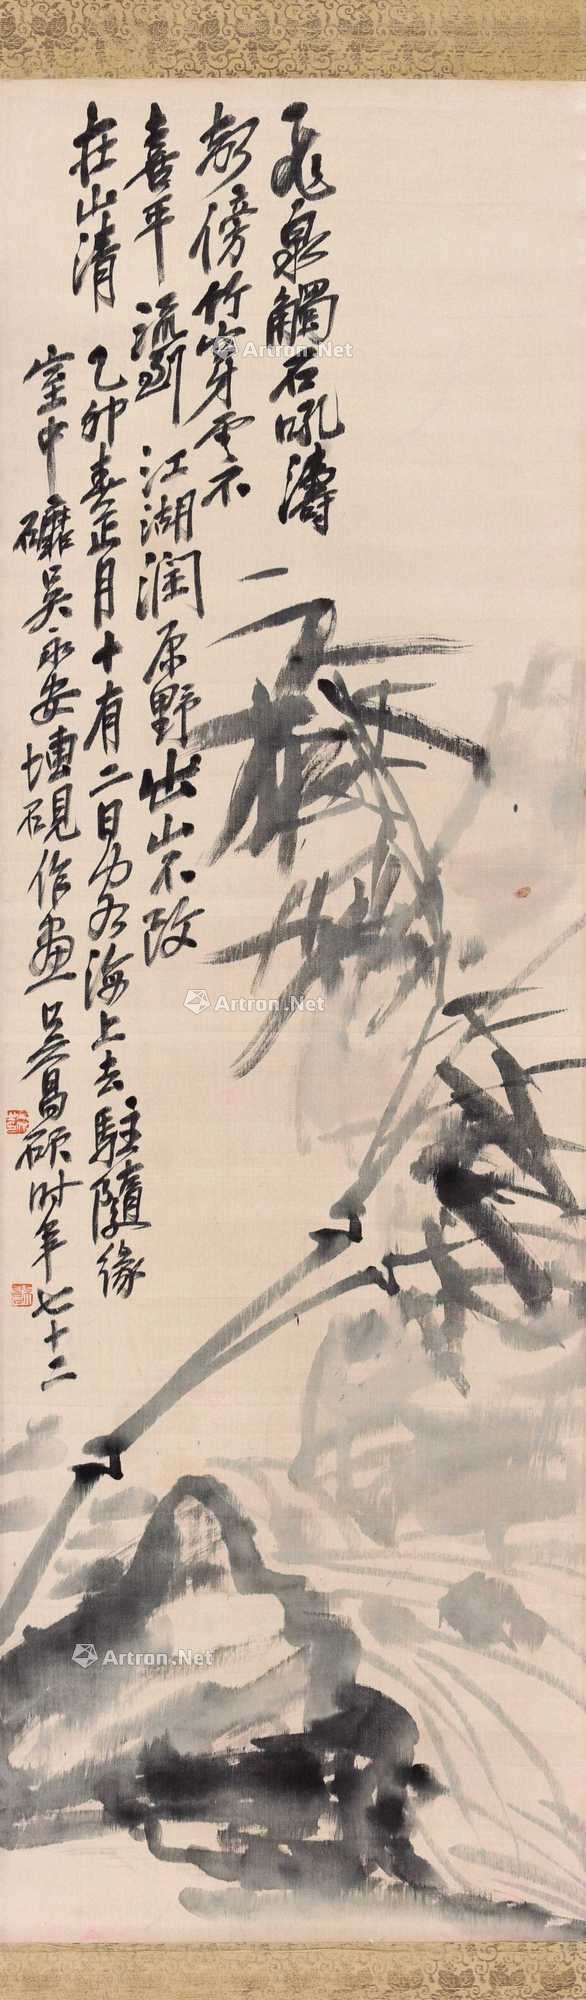 飛泉觸石吼濤
聲傍竹穿雲不
喜平流到江湖潤原野出山不改
在山清
乙卯春正月十有二日客海上去駐隨緣
室中礦吳永安塼硯作畫吳昌碩時年七十二
Artron.Net
Artron.Net
Artron.Net